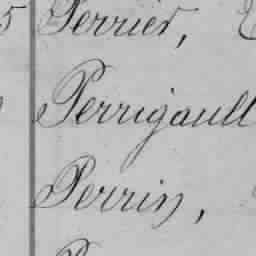 5 Perrier,
Perrigault
Perrin,